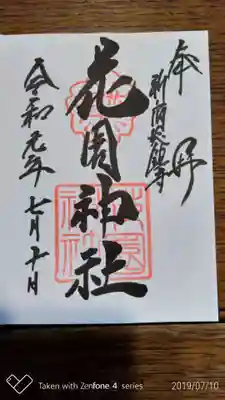 奉拝
新宿総鎮守
花園神社
花園神社
令和元年
七月十日
Taken with Zenfone 4 series
2019/07/10